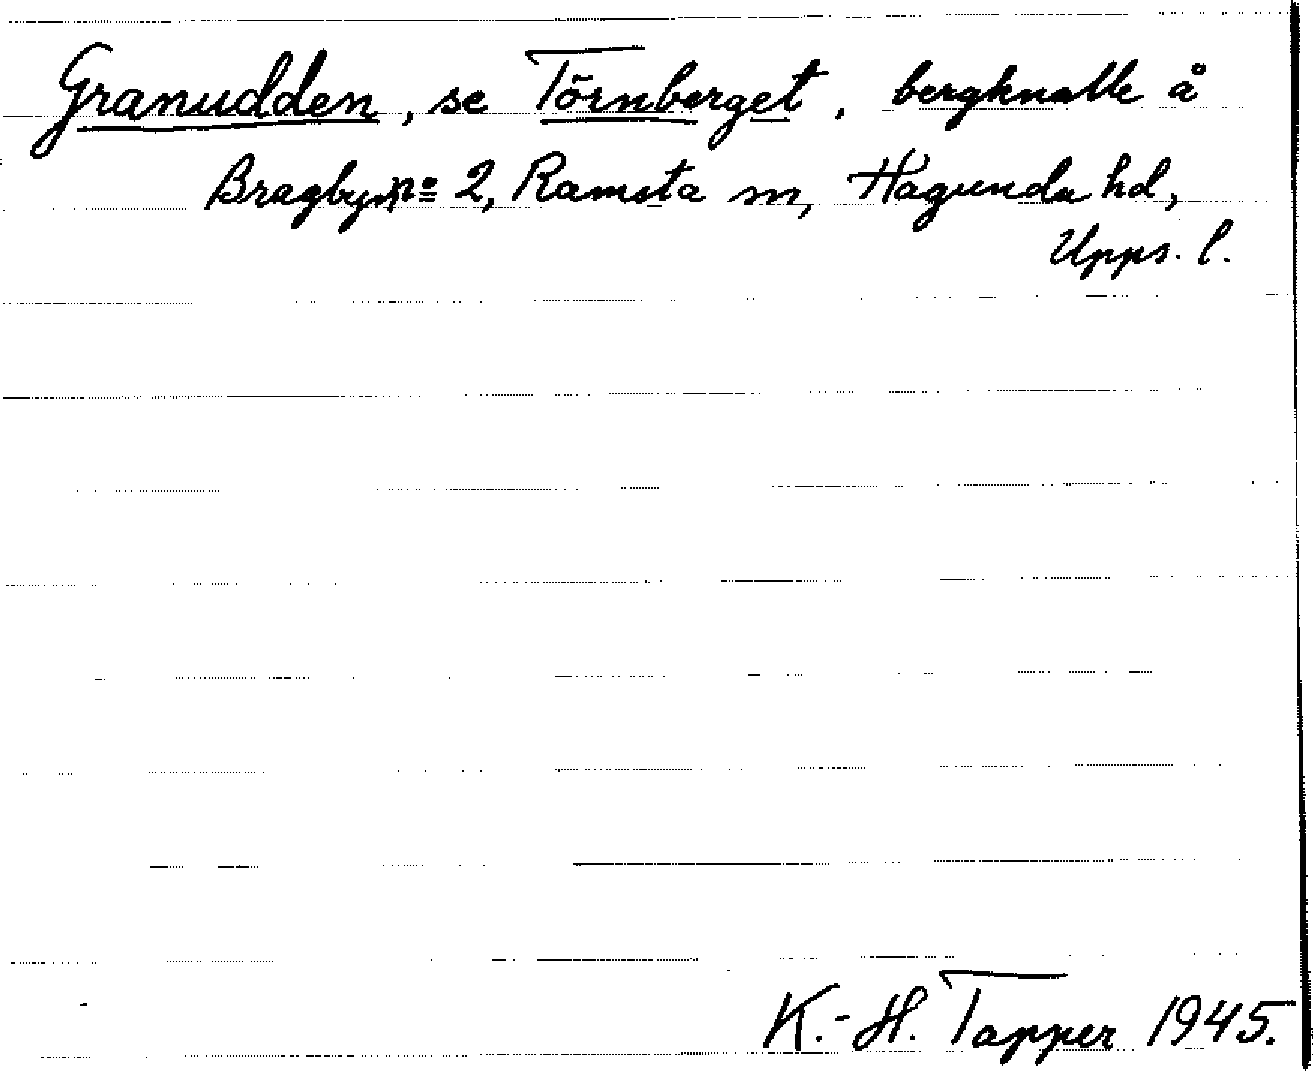 Granudden, se Törnberget, bergknalle å
Bragby nº 2, Ramsta sn, Hagunda hd,
Upps. l.
K.-H. Tapper 1945.